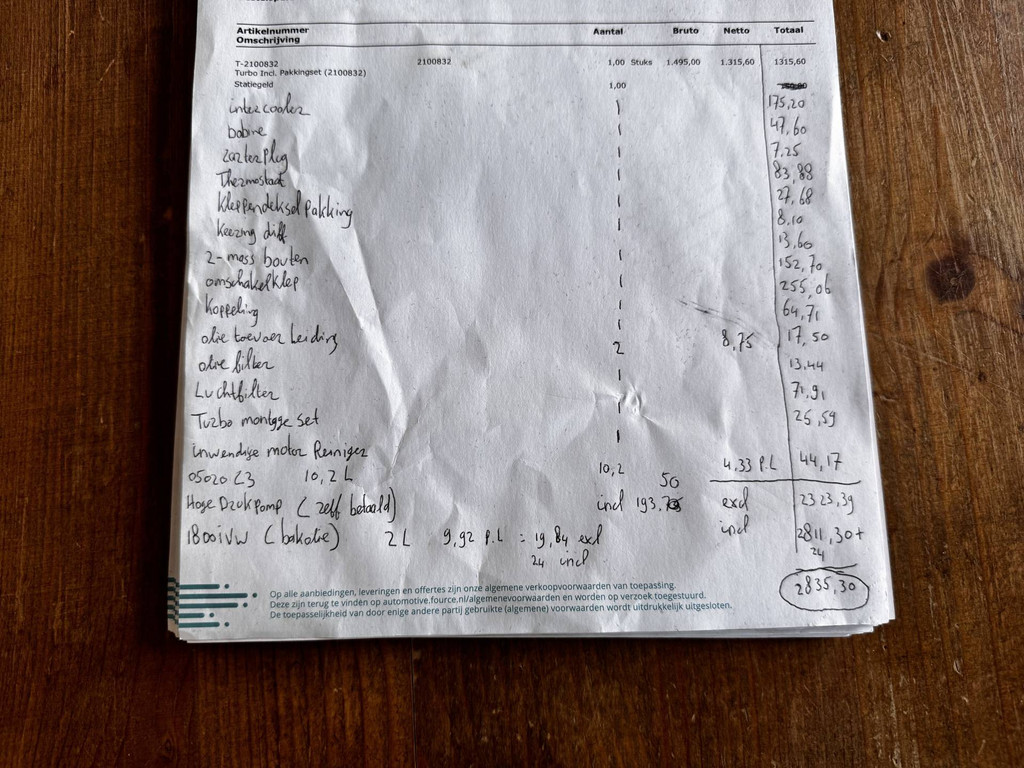 Artikelnummer Aantal Bruto Netto Totaal
Omschrijving
T-2100832 2100832 1,00 Stuks 1.495,00 1.315,60 1315,60
Turbo Incl. Pakkingset (2100832)
Statiegeld 1,00
intercooler 1 175,20
bobine 1 47,60
1 7,25
Thermostaat 1 83,88
Kleppendeksel pakking 1 27,68
Keering diff 1 8,10
2-mass bouten 1 13,60
omschakelklep 1 152,70
Koppeling 1 255,06
olie toevoer leiding 1 64,71
olie filter 2 8,75 17,50
Luchtfilter 1 13,44
Turbo montage set 1 71,91
inwendige motor Reiniger 1 25,59
05020 L3 10,2 L 10,2 4,33 P.L 44,17
Hoge Druk Pomp (zelf betaald) incl 193,50 excl 2323,39
incl 2811,30+
1800iVW (bakolie) 2L 9,92 P.L = 19,84 excl 24
24 incl 2835,30
Op alle aanbiedingen, leveringen en offertes zijn onze algemene verkoopvoorwaarden van toepassing.
Deze zijn terug te vinden op automotive.fource.nl/algemenevoorwaarden en worden op verzoek toegestuurd.
De toepasselijkheid van door enige andere partij gebruikte (algemene) voorwaarden wordt uitdrukkelijk uitgesloten.